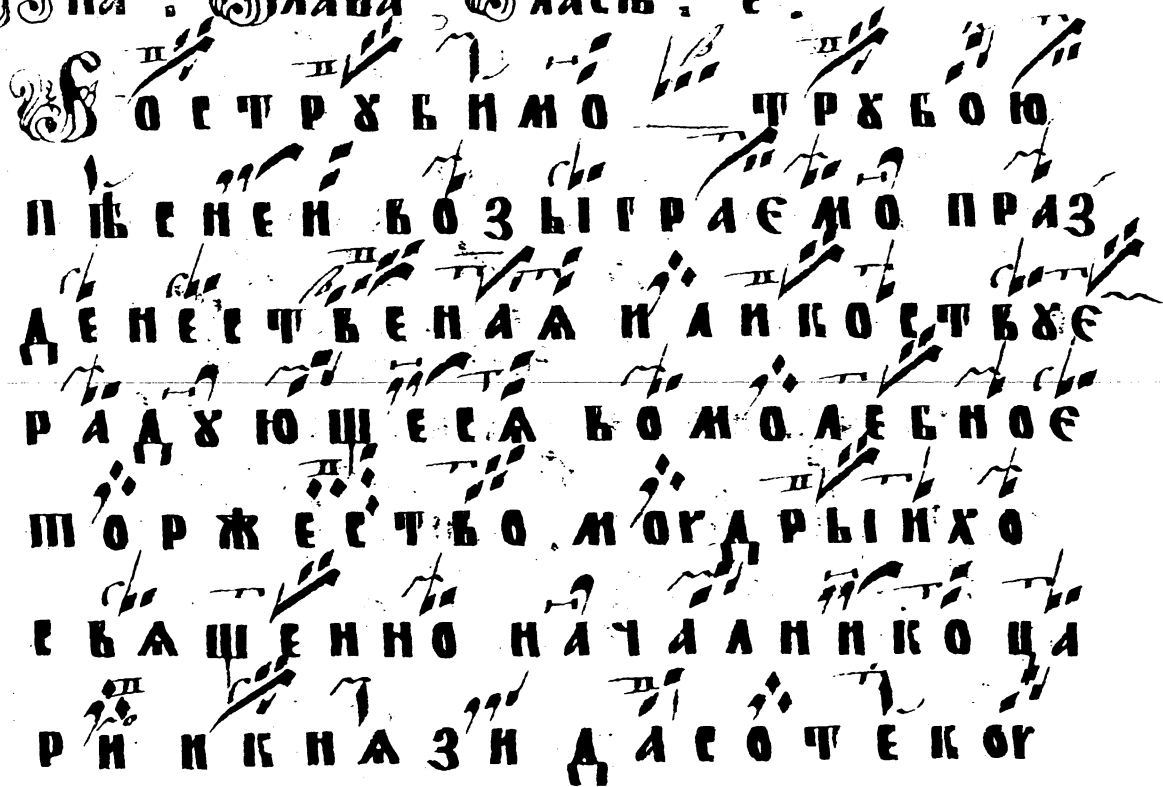 Вострꙋбимо трꙋбою
пѣсенеи возыграемо праз
денественаѧ и ликоствꙋе
радꙋющесѧ во молебное
торжество моудрыихо
свѧщенно началникоца
ри и кнѧзи да сотекоу